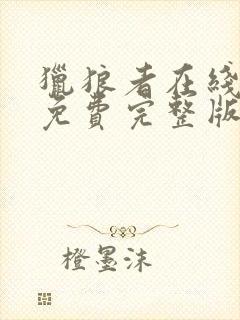 獵狼者在綫
免費完整版
橙墨沫